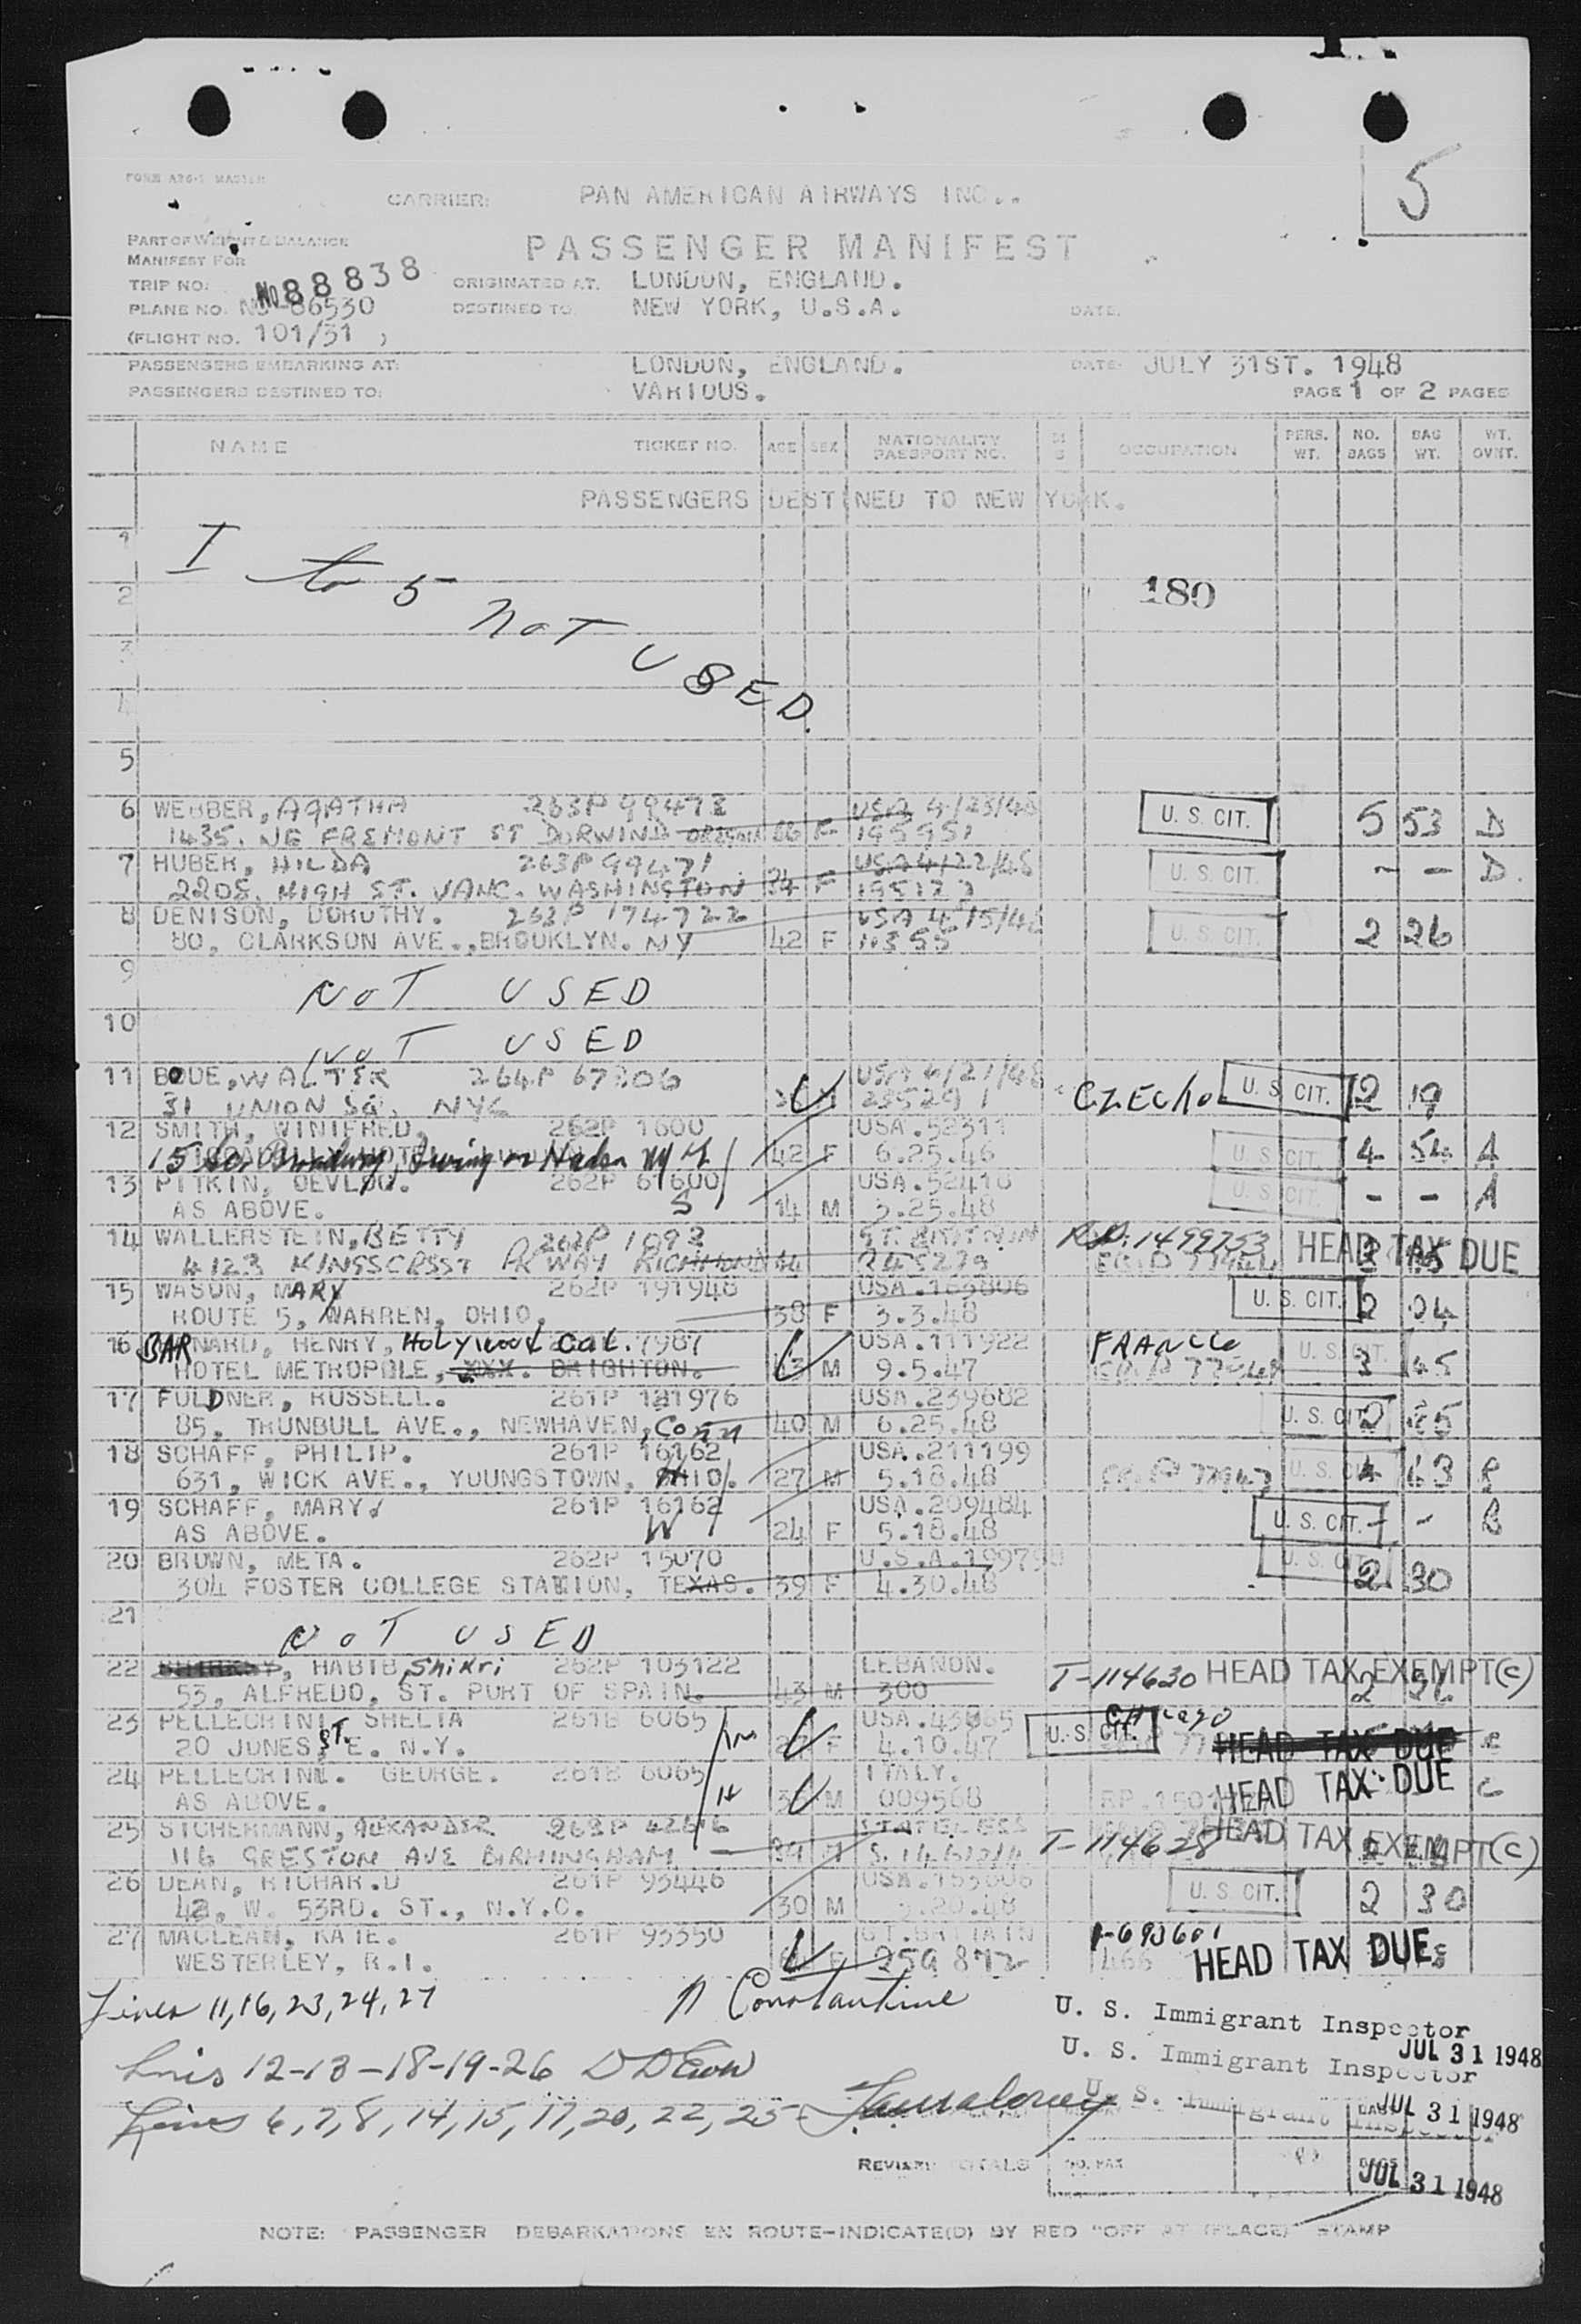 5
CARRIER: PAN AMERICAN AIRWAYS INC..
PART OF WEIGHT & BALANCE
MANIFEST FOR
PASSENGER MANIFEST
TRIP NO: No 88838
ORIGINATED AT. LONDON, ENGLAND.
PLANE NO. NC-86530
DESTINED TO. NEW YORK, U.S.A.
DATE.
(FLIGHT NO. 101/31 )
PASSENGERS EMBARKING AT: LONDON, ENGLAND. DATE: JULY 31ST. 1948
PASSENGERS DESTINED TO: VARIOUS. PAGE 1 OF 2 PAGES
NAME TICKET NO. AGE SEX NATIONALITY PASSPORT NO. OCCUPATION PERS. WT. NO. BAGS BAG WT. WT. OVHT.
PASSENGERS DESTINED TO NEW YORK.
1 I to 5 NOT USED.
2 180
3
4
5
6 WEBBER, AGATHA 263P 99472 USA 4/23/48 U. S. CIT. 5 53 D
1435. NE FREMONT ST F 195951
7 HUBER, HILDA 263P 99471 USA 4/22/48 U. S. CIT. - - D.
2208. HIGH ST. VANC. WASHINGTON 34 F
8 DENISON, DOROTHY. 263P 174722 USA 4/15/48 U. S. CIT. 2 26
80, CLARKSON AVE., BROOKLYN. NY 42 F
9 NOT USED
10 NOT USED
11 BODE, WALTER 264P 67306 USA 4/21/48 CZECHO U. S. CIT. 2 19
31 UNION SQ. NYC 235291
12 SMITH, WINIFRED. 262P 1600 USA.52311 U. S. CIT. 4 54 A
42 F 6.25.46
13 PITKIN, 262P 61600 USA.52410 U. S. CIT. - - A
AS ABOVE. S 14 M 3.25.48
14 WALLERSTEIN, BETTY 262P 1093 HEAD TAX DUE
4123 PKWAY RICHMOND
15 WASON, MARY 262P 191948 USA.163806 U. S. CIT. 2 24
ROUTE 5, WARREN, OHIO. 38 F 3.3.48
16 BARNARD, HENRY, Holywood Cal. 7987 USA.111922 FRANCE U. S. CIT. 3 45
HOTEL METROPOLE, XXX. BRIGHTON. 43 M 9.5.47
17 FULDNER, RUSSELL. 261P 121976 USA.239682 U. S. CIT. 2
85. TRUNBULL AVE., NEWHAVEN, Conn 40 M 6.25.48
18 SCHAFF, PHILIP. 261P 16162 USA.211199 U. S. CIT. 4 63 B
631, WICK AVE., YOUNGSTOWN, OHIO. 27 M 5.18.48
19 SCHAFF, MARY. 261P 16162 USA.209484 U. S. CIT. - - B
AS ABOVE. W 24 F 5.18.48
20 BROWN, META. 262P 15070 U.S.A. U. S. CIT. 2 30
304 FOSTER COLLEGE STATION, TEXAS. 39 F 4.30.48
21 NOT USED
22 HABIB, Shikri 262P 103122 LEBANON. T-114630 HEAD TAX EXEMPT(C)
53, ALFREDO, ST. PORT OF SPAIN. 43 M 300
23 PELLEGRINI, SHELIA 261B 6065 USA. U. S. CIT. Chicago HEAD TAX DUE
20 JONES ST. E. N.Y. F 4.10.47
24 PELLEGRINI. GEORGE. 261B 6065 ITALY. HEAD TAX DUE C
AS ABOVE. M 009568
25 STOHERMANN, ALEXANDER 262P STATELESS T-114628 HEAD TAX EXEMPT(C)
116 GRESTON AVE BIRMINGHAM
26 DEAN, RICHAR.D 261P 95446 USA. U. S. CIT. 2 30
42, W. 53RD. ST., N.Y.C. 30 M
27 MACLEAN, KATE. 261P 95550 GT.BRITAIN HEAD TAX DUE
WESTERLEY, R.I. F 259872
Lines 11, 16, 23, 24, 27 Constantine U. S. Immigrant Inspector JUL 31 1948
12-13-18-19-26 U. S. Immigrant Inspector JUL 31 1948
Lines 6, 7, 8, 14, 15, 17, 20, 22, 25 U. S. Immigrant Inspector
JUL 31 1948
NOTE: PASSENGER DEBARKATIONS EN ROUTE-INDICATE(D) BY RED "OFF AT (PLACE)" STAMP